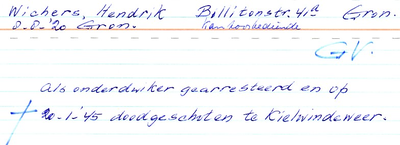 Wichers, Hendrik Billitonstr. 41a Gron.
8-8-'20 Gron. Kantoorbediende
G.V.
Als onderduiker gearresteerd en op
20-1-'45 doodgeschoten te Kielwindeweer.